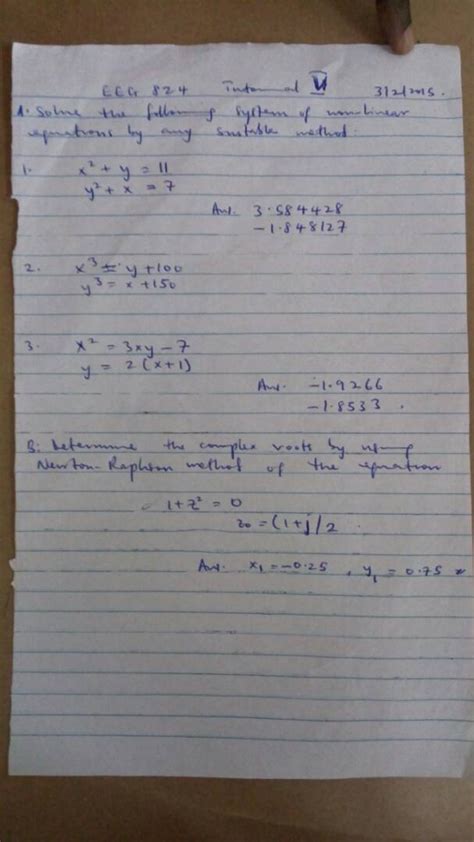 EEG 824 Tutorial VI 3/2/2015.
A. Solve the following system of nonlinear
equations by any suitable method.
1. x² + y = 11
y² + x = 7
Ans. 3.584428
-1.848127
2. x³ = y + 100
y³ = x + 150
3. x² = 3xy - 7
y = 2(x+1)
Ans. -1.9266
-1.8533.
B: Determine the complex roots by using
Newton-Raphson method of the equation
1 + z² = 0
z0 = (1+j)/2.
Ans. x₁ = -0.25, y₁ = 0.75